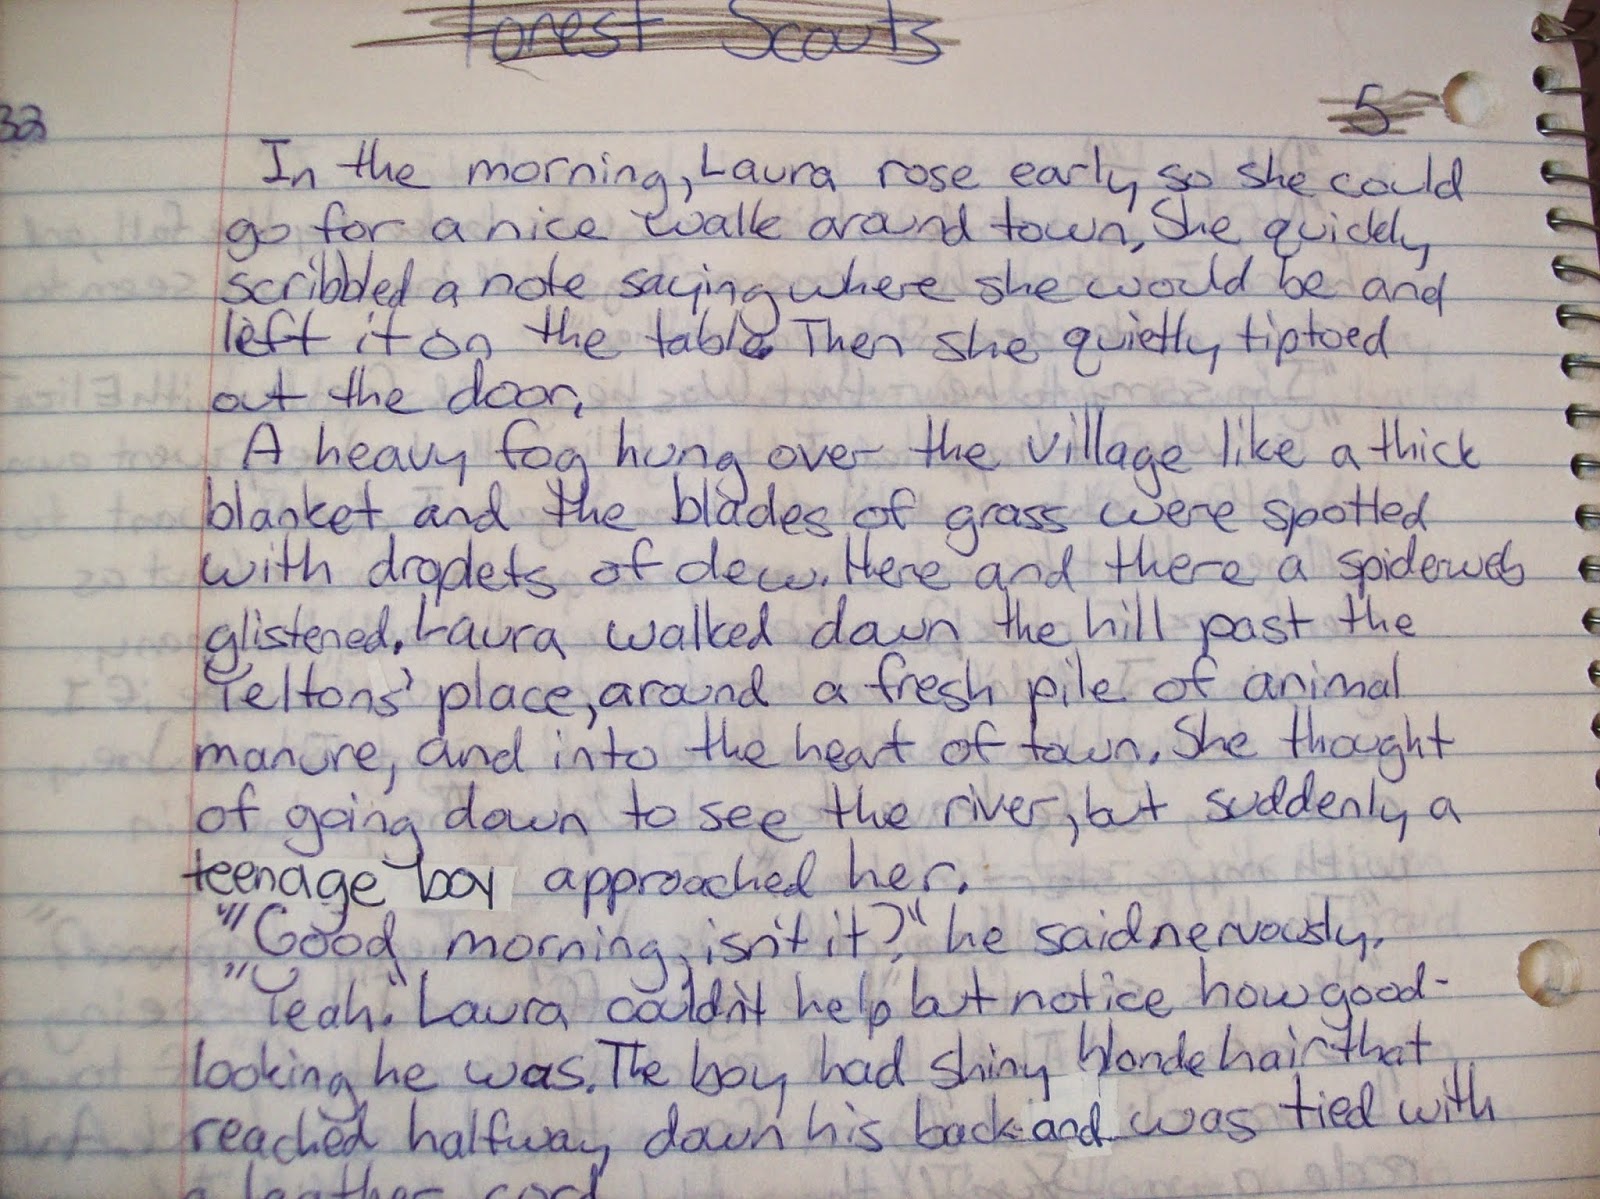 Forest Scouts
5
33
In the morning, Laura rose early so she could
go for a nice walk around town. She quickly
scribbled a note saying where she would be and
left it on the table. Then she quietly tiptoed
out the door.
A heavy fog hung over the village like a thick
blanket and the blades of grass were spotted
with droplets of dew. Here and there a spiderweb
glistened. Laura walked down the hill past the
Yeltons' place, around a fresh pile of animal
manure, and into the heart of town. She thought
of going down to see the river, but suddenly a
teenage boy approached her.
"Good morning, isn't it?" he said nervously.
"Yeah." Laura couldn't help but notice how good-
looking he was. The boy had shiny blonde hair that
reached halfway down his back and was tied with
a leather cord